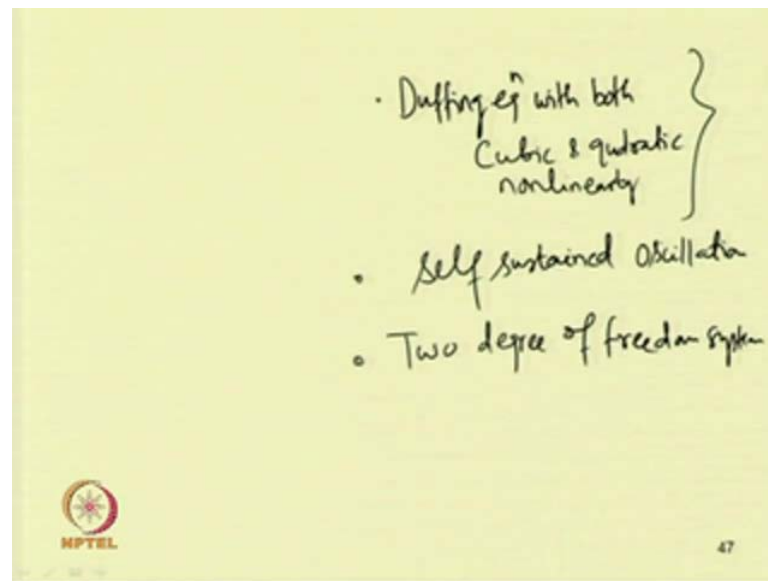 • Duffing eqⁿ with both
Cubic & qudratic
nonlinearty
• Self sustained Oscillation
• Two degree of freedom system
NPTEL
47